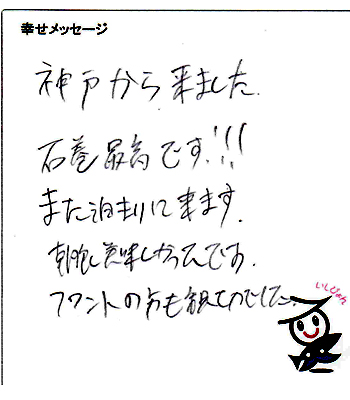 幸せメッセージ
神戸から来ました.
石巻最高です!!!
また泊まりに来ます.
朝食も美味しかったです.
フロントの方も親切でした.
いしぴょん